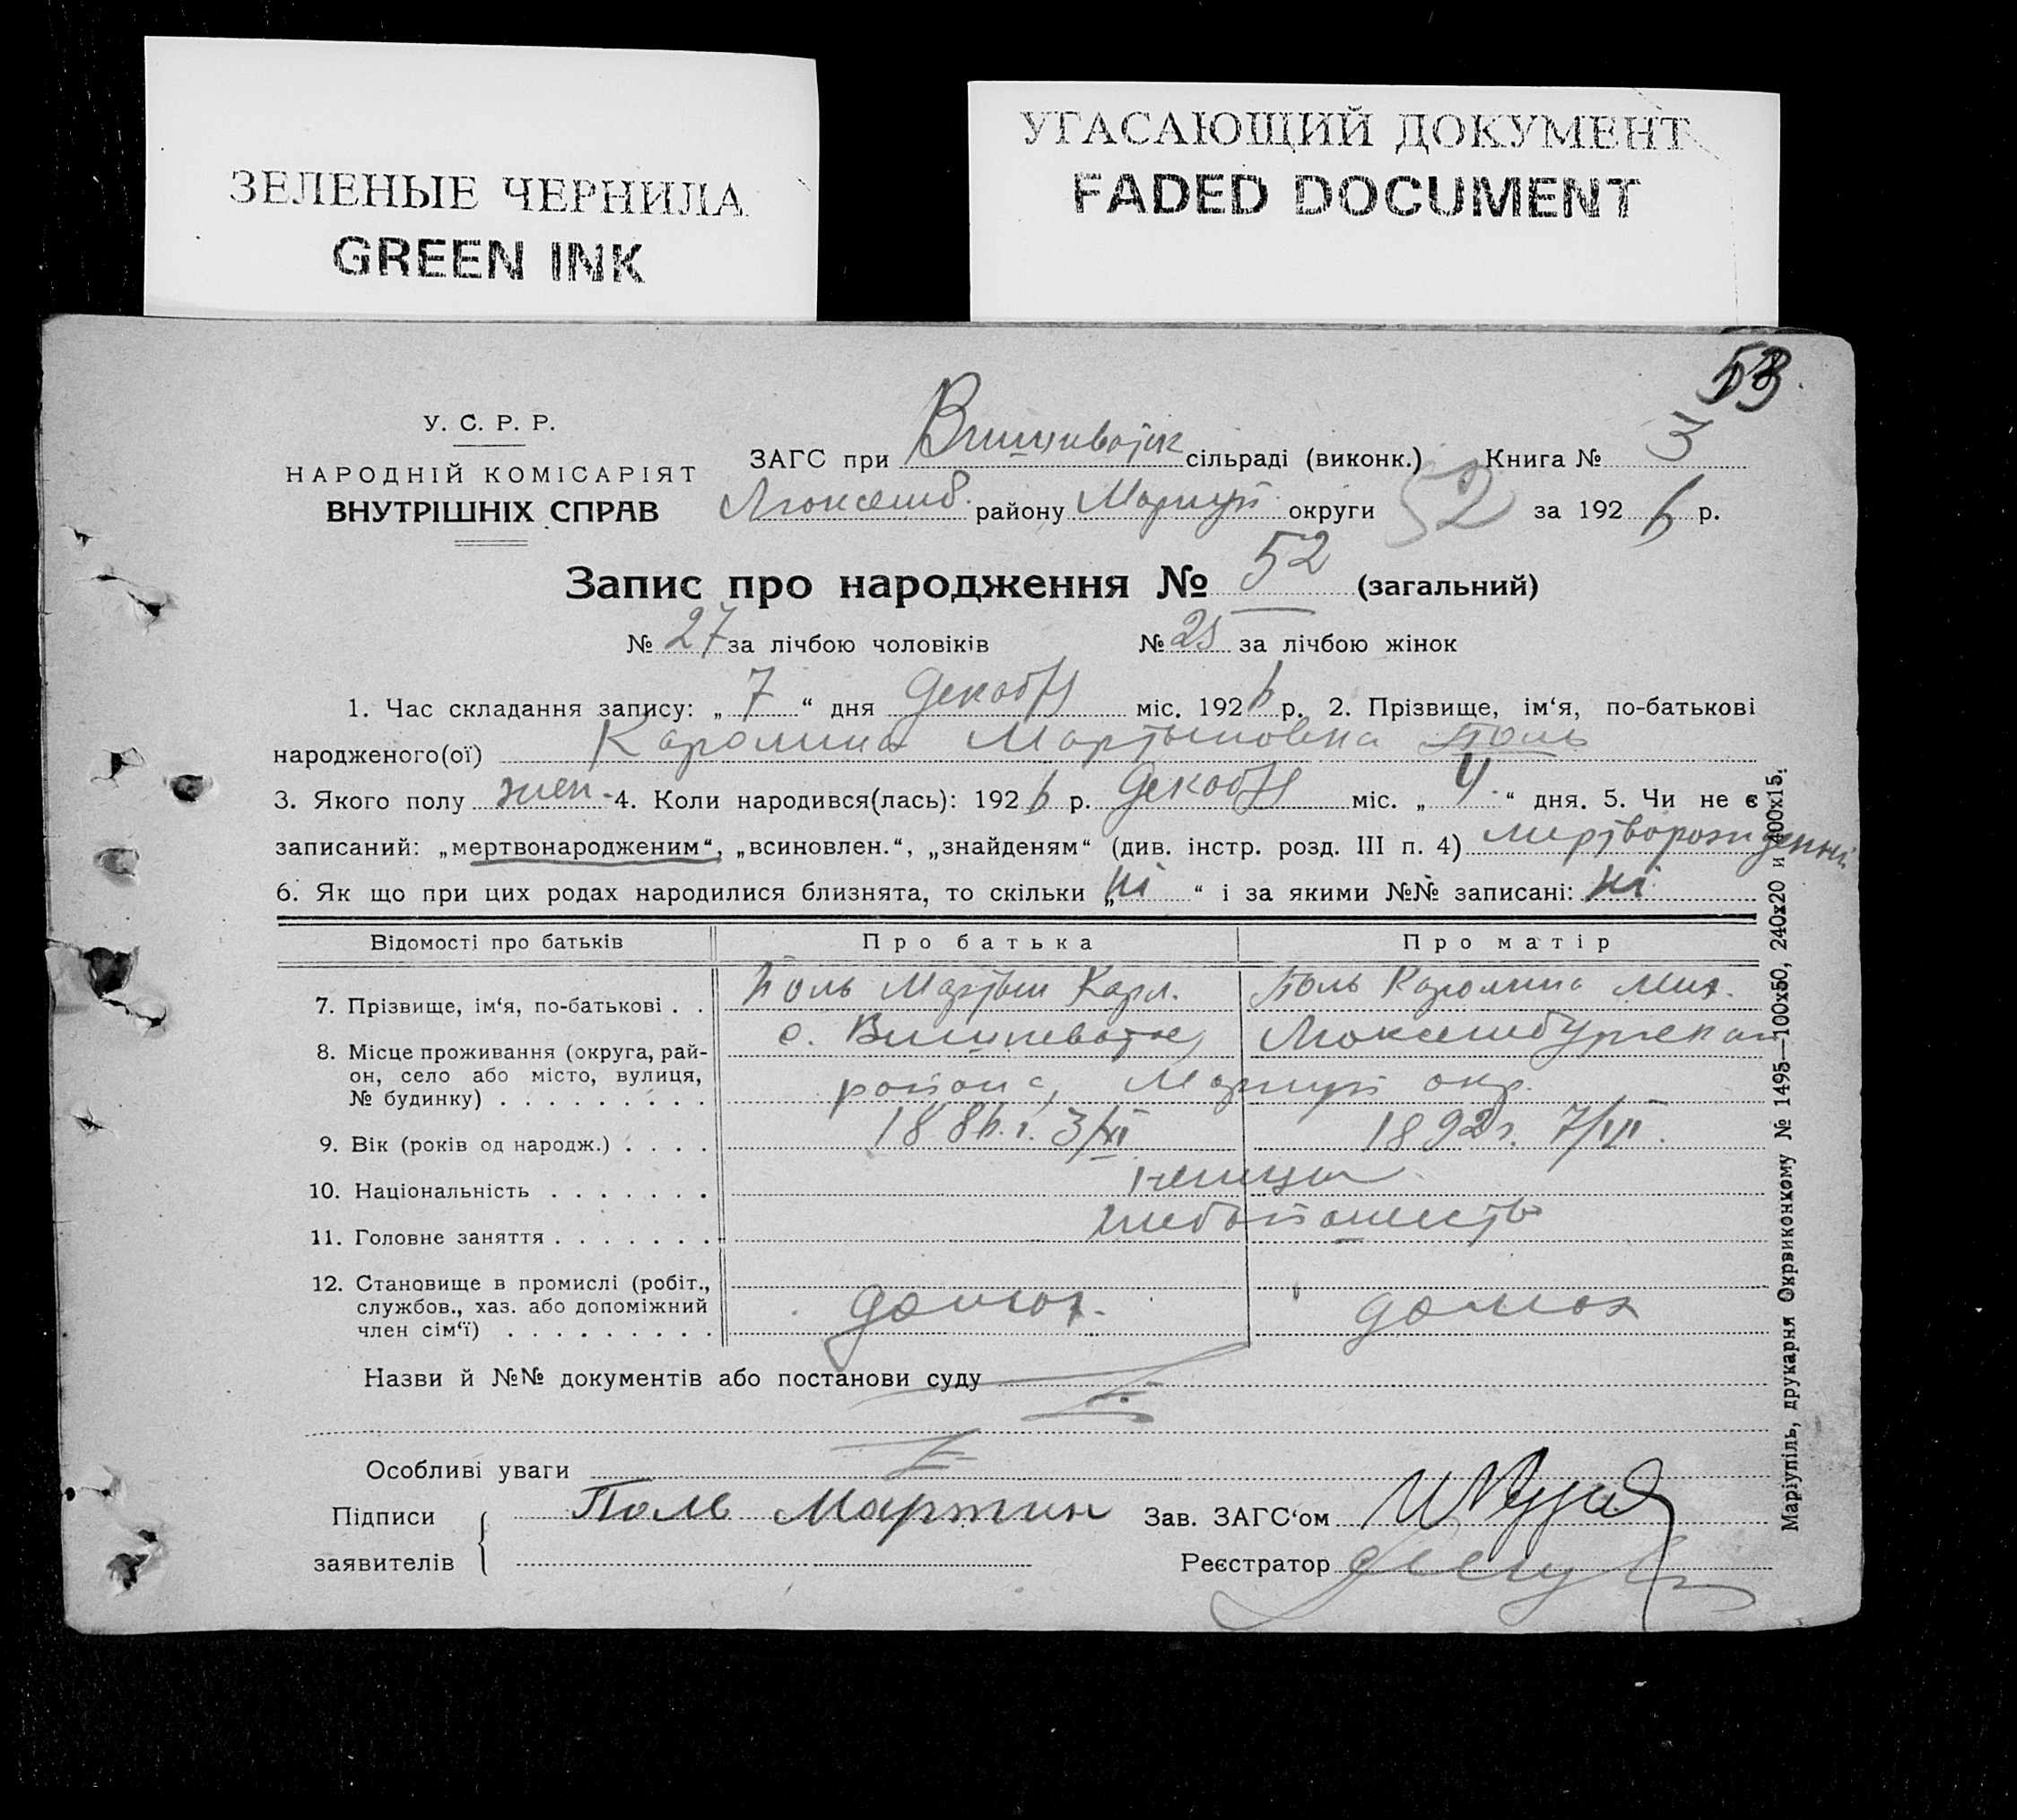 ЗЕЛЕНЫЕ ЧЕРНИЛА
GREEN INK
УГАСАЮЩИЙ ДОКУМЕНТ
FADED DOCUMENT
53
У. С. Р. Р.
НАРОДНІЙ КОМІСАРІЯТ
ВНУТРІШНІХ СПРАВ
ЗАГС при Вишневатск сільраді (виконк.) Книга № 3
Люксемб. району Мариуп округи 52 за 1926 р.
Запис про народження № 52 (загальний)
№ 27 за лічбою чоловіків № 25 за лічбою жінок
1. Час складання запису: „ 7 “ дня декабря міс. 1926 р. 2. Прізвище, ім‘я, по-батькові
народженого(ої) Каролина Мартыновна Поль
3. Якого полу жен. 4. Коли народився(лась): 1926 р. декабря міс. „ 4 “ дня. 5. Чи не є
записаний: „мертвонародженим“, „всиновлен.“, „знайденям“ (див. інстр. розд. III п. 4) мертворожденный
6. Як що при цих родах народилися близнята, то скільки „ ні “ і за якими №№ записані: ні
Відомості про батьків Про батька Про матір
7. Прізвище, ім‘я, по-батькові . . Поль Мартын Карл. Поль Каролина Мих.
8. Місце проживання (округа, рай-
он, село або місто, вулиця,
№ будинку) . . . . . . . . .
с. Вишневатое, Люксембургского
района, Мариуп окр.
9. Вік (років од народж.) . . . . 1886 г. 3/XI 1892 г. 7/III.
10. Національність . . . . . . . немцы
11. Головне заняття . . . . . . . хлебопашеств
12. Становище в промислі (робіт.,
службов., хаз. або допоміжний
член сім‘ї) . . . . . . . . .
домох. домох
Назви й №№ документів або постанови суду
Особливі уваги
Підписи
заявителів
Поль Мартин
Зав. ЗАГС‘ом
Реєстратор
Маріупіль, друкарня Окрвиконкому № 1495—100x50, 240x20 и 400x15.